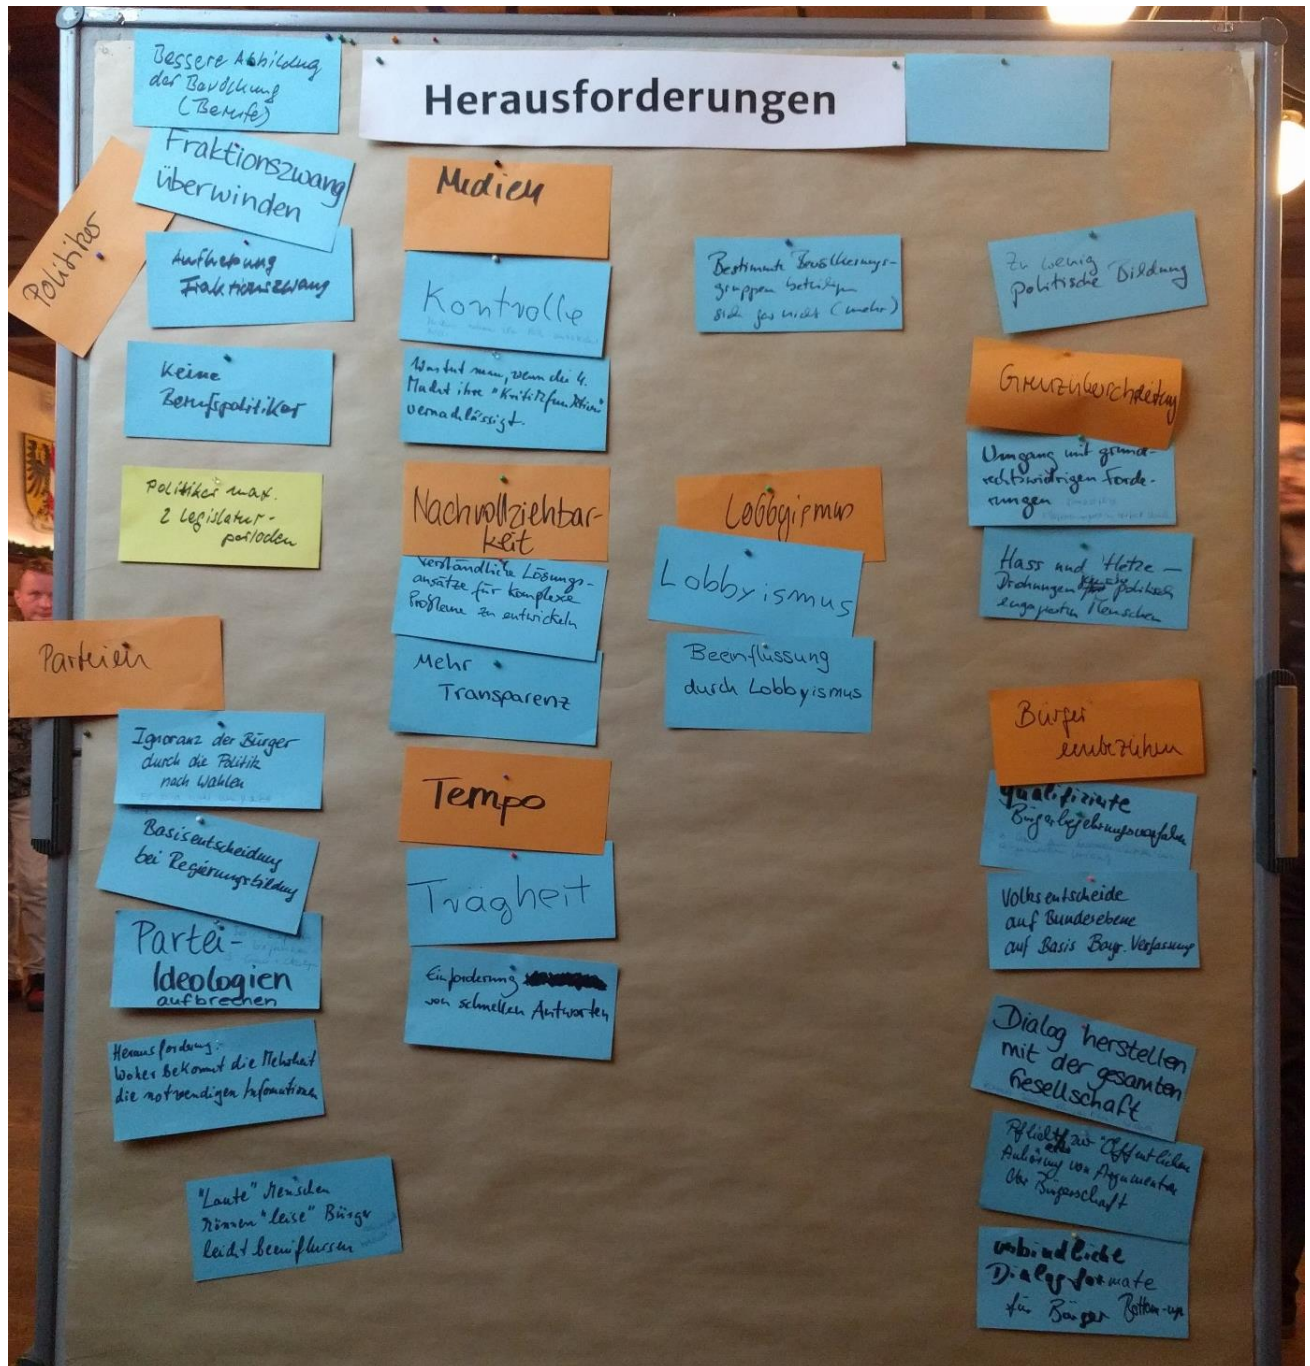 Herausforderungen
Bessere Abbildung
der Bevölkerung
(Berufe)
Politiker
Fraktionszwang
überwinden
Aufhebung
Fraktionszwang
Keine
Berufspolitiker
Politiker max.
2 Legislatur-
perioden
Parteien
Ignoranz der Bürger
durch die Politik
nach Wahlen
Basisentscheidung
bei Regierungsbildung
Partei-
Ideologien
aufbrechen
Herausforderung:
Woher bekommt die Mehrheit
die notwendigen Informationen
"Laute" Menschen
können "leise" Bürger
leicht beeinflussen
Medien
Kontrolle
Was tut man, wenn die 4.
Macht ihre "Kritikfunktion"
vernachlässigt.
Nachvollziehbar-
keit
Verständliche Lösungs-
ansätze für komplexe
Probleme zu entwickeln
Mehr
Transparenz
Tempo
Trägheit
Einforderung
von schnellen Antworten
Bestimmte Bevölkerungs-
gruppen beteiligen
sich gar nicht (mehr)
Lobbyismus
Lobbyismus
Beeinflussung
durch Lobbyismus
Zu wenig
politische Bildung
Grenzüberschreitung
Umgang mit grund-
rechtswidrigen Forde-
rungen
Hass und Hetze –
Drohungen politisch
engagierten Menschen
Bürger
einbeziehen
qualifizierte
Bürgerbegehrungsverfahren
Volksentscheide
auf Bundesebene
auf Basis Bayr. Verfassung
Dialog herstellen
mit der gesamten
Gesellschaft
Pflicht zur Öffentlichen
Anhörung von Argumenten
der Bürgerschaft
verbindliche
Dialogformate
für Bürger Bottom-up